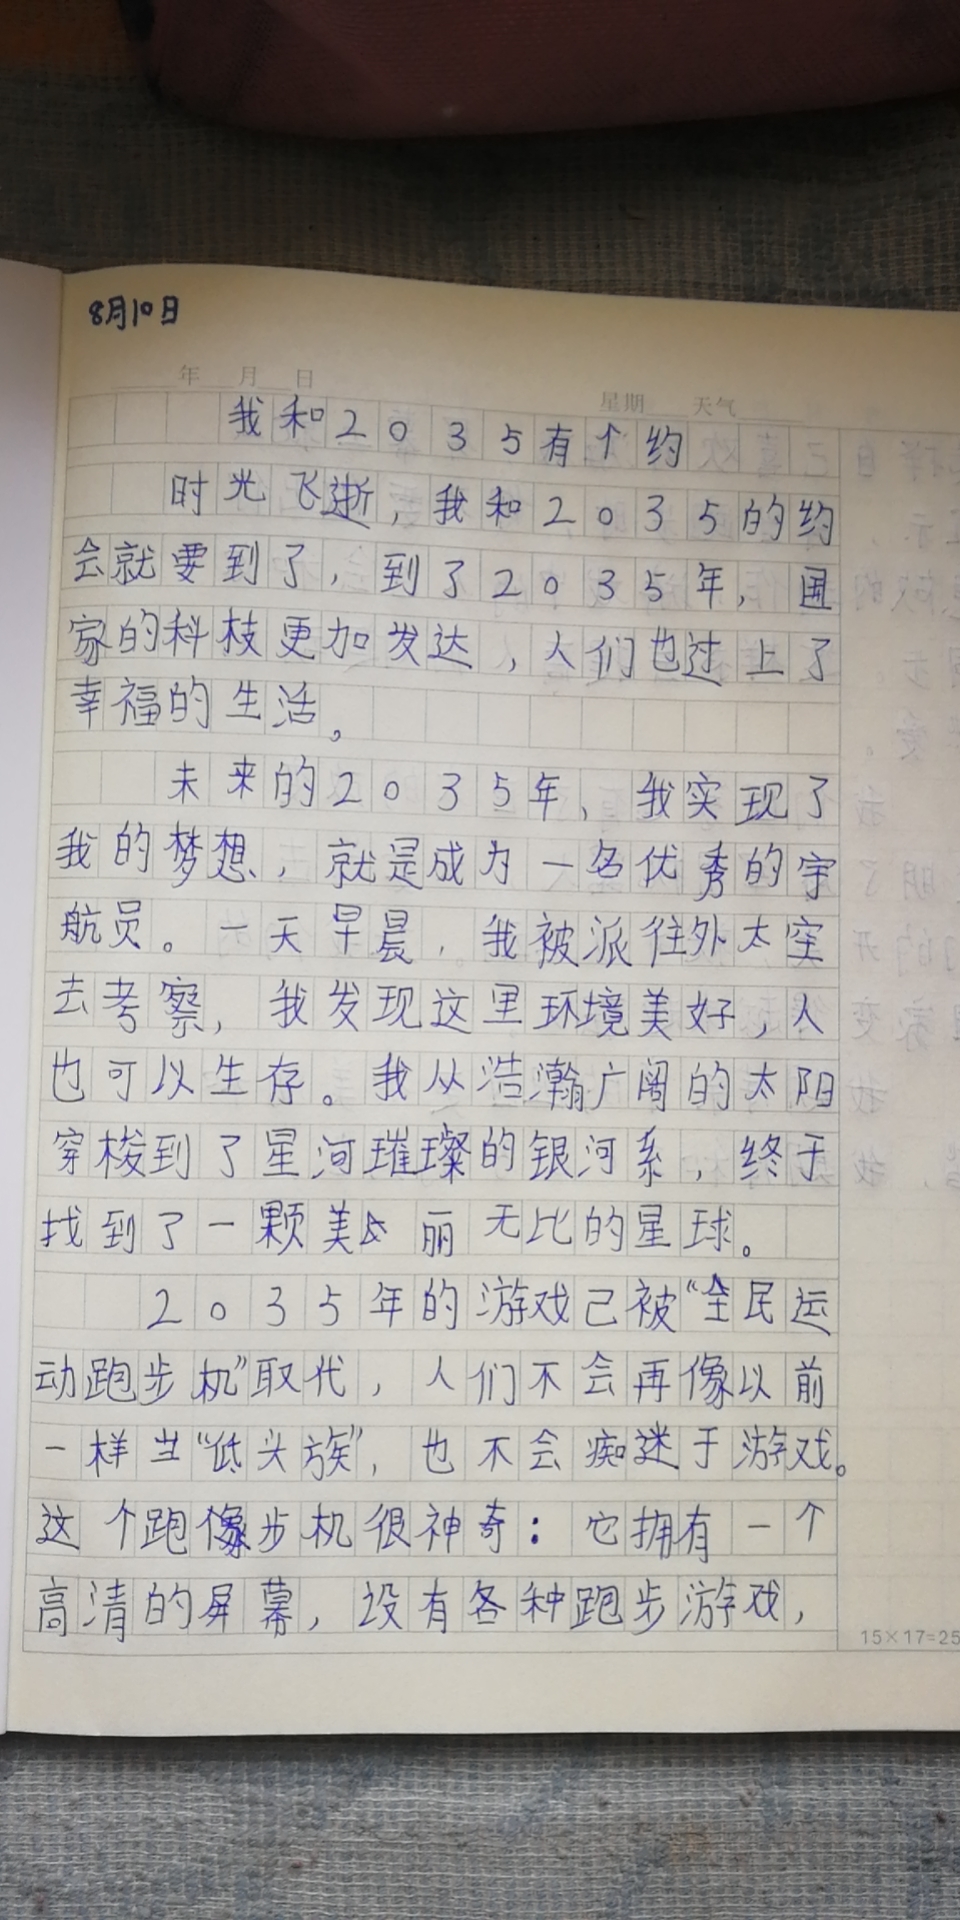 8月10日
年 月 日
星期 天气
我和2035有个约
时光飞逝，我和2035的约
会就要到了，到了2035年，国
家的科技更加发达，人们也过上了
幸福的生活。
未来的2035年，我实现了
我的梦想，就是成为一名优秀的宇
航员。一天早晨，我被派往外太空
去考察，我发现这里环境美好，人
也可以生存。我从浩瀚广阔的太阳
穿梭到了星河璀璨的银河系，终于
找到了一颗美丽无比的星球。
2035年的游戏已被“全民运
动跑步机”取代，人们不会再像以前
一样当“低头族”，也不会痴迷于游戏。
这个跑步机很神奇：它拥有一个
高清的屏幕，设有各种跑步游戏，
15×17=25